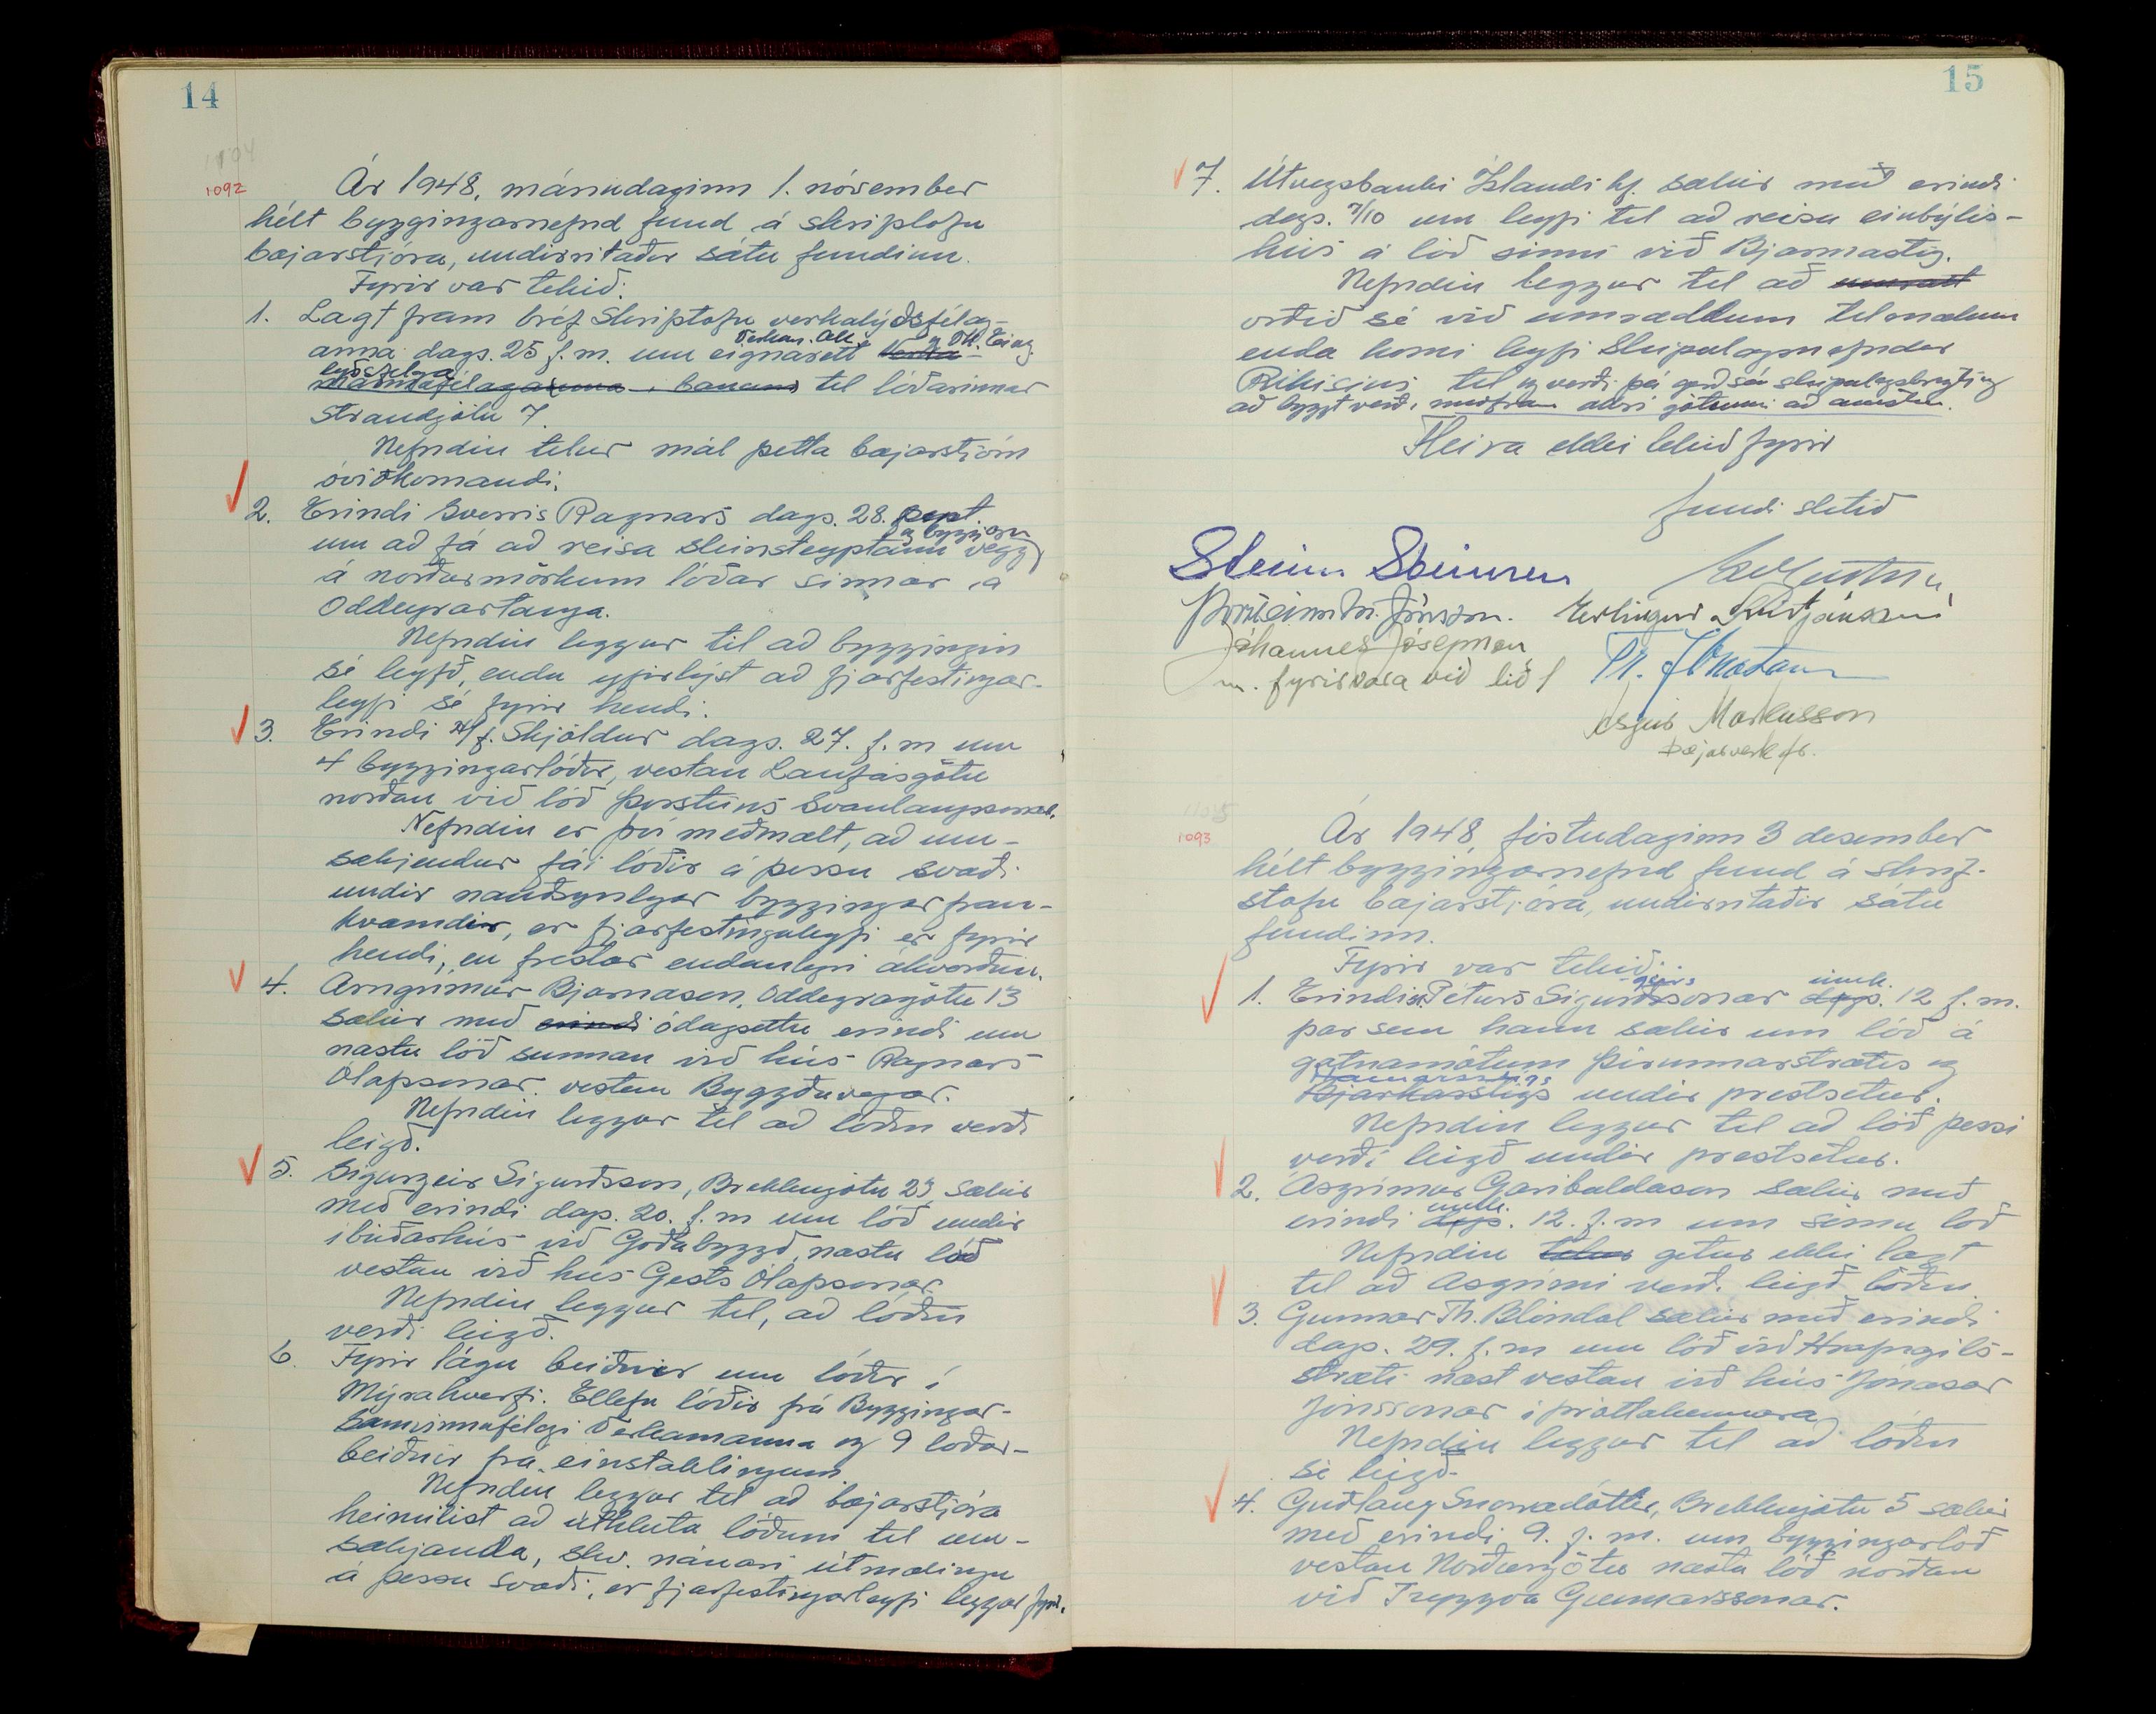 14
1104
1092
Ár 1948, mánudaginn 1. nóvember
hélt byggingarnefnd fund á skrifstofu
bæjarstjóra, undirritaðir sátu fundinn.
Fyrir var tekið:
1. Lagt fram bréf Skrifstofu verkalýðsfélag-
anna dags. 25 f.m. um eignarétt Verka-
til lóðarinnar
Strandgötu 7.
Nefndin telur mál þetta bæjarstjórn
óviðkomandi.
2. Erindi Sverris Ragnars dags. 28. sept
um að fá að reisa steinsteyptann vegg
á norðurmörkum lóðar sinnar á
Oddeyrartanga.
Nefndin leggur til að byggingin
sé leyfð, enda upplýst að fjárfestingar-
leyfi sé fyrir hendi.
3. Erindi H/f. Skjöldur dags. 27. f.m um
4 byggingarlóðir, vestan Laufásgötu
norðan við lóð Þorsteins Svanlaugssonar.
Nefndin er því meðmælt, að um-
sækjendur fái lóðir á þessu svæði
undir nauðsynlegar byggingarfram-
kvæmdir, er fjárfestingaleyfi er fyrir
hendi, en frestar endanlegri ákvörðun.
4. Arngrímur Bjarnason, Oddeyragötu 13
sækir með erindi ódagsettu erindi um
næstu lóð sunnan við hús Ragnars
Ólafssonar vestan Byggðavegar.
Nefndin leggur til að lóðin verði
leigð.
5. Sigurgeir Sigurðsson, Brekkugötu 23, sækir
með erindi dags. 20. f.m um lóð undir
íbúðarhús við Goðabyggð, næstu lóð
vestan við hús Gests Ólafssonar.
Nefndin leggur til, að lóðin
verði leigð.
6. Fyrir lágu beiðnir um lóðir í
Mýrahverfi. Ellefu lóðir frá Byggingar-
samvinnufélagi Verkamanna og 9 lóðar-
beiðnir frá einstaklingum.
Nefndin leggur til að bæjarstjóra
heimilist að úthluta lóðum til um-
sækjanda, skv. nánari útmælingu
á þessu svæði, er fjárfestingarleyfi leggur fyrir.
15
7. Útvegsbanki Íslands hf. sækir með erindi
dags. 7/10 um leyfi til að reisa einbýlis-
hús á lóð sinni við Bjarmastíg.
Nefndin leggur til að
orðið sé við umræddum tilmælum
enda komi leyfi Skipulagsnefndar
Ríkisins til og verði þá gerð sú skipulagsbreyting
að byggt verði meðfram allri götunni að austan.
Fleira ekki tekið fyrir
fundi slitið
Steinn Steinsen
Þorsteinn M. Jónsson. Erlingur Kristjánsson
Jóhannes Jósepsson
m. fyrirvara við lið 1
Ásgeir Markússon
bæjarverkfr.
1093
Ár 1948, föstudaginn 3 desember
hélt byggingarnefnd fund á skrif-
stofu bæjarstjóra, undirritaðir sátu
fundinn.
Fyrir var tekið:
1. Erindi Péturs Sigurgeirssonar dags. 12 f.m.
þar sem hann sækir um lóð á
gatnamótum Þórunnarstrætis og
Bjarkarstígs undir prestsetur.
Nefndin leggur til að lóð þessi
verði leigð undir prestsetur.
2. Ásgrímur Garibaldason sækir með
erindi dags. 12. f.m um sömu lóð
Nefndin telur getur ekki lagt
til að Ásgrími verði leigð lóðin.
3. Gunnar Th. Blöndal sækir með erindi
dags. 29. f.m um lóð við Hrafnagils-
stræti næst vestan við hús Jónasar
Jónssonar íþróttakennara
Nefndin leggur til að lóðin
sé leigð.
4. Guðlaug Snorradóttir, Brekkugötu 5 sækir
með erindi 9. f.m. um byggingarlóð
vestan Norðurgötu næsta lóð norðan
við Tryggva Gunnarssonar.